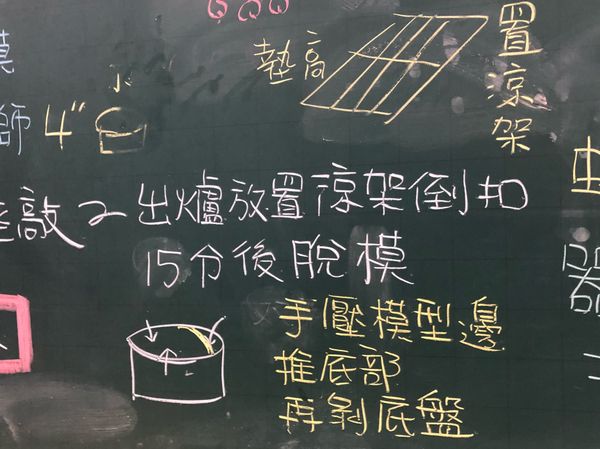 墊高
置涼架
師 4"
敲~出爐放置涼架倒扣
15分後脫模
手壓模型邊
推底部
再剝底盤
器